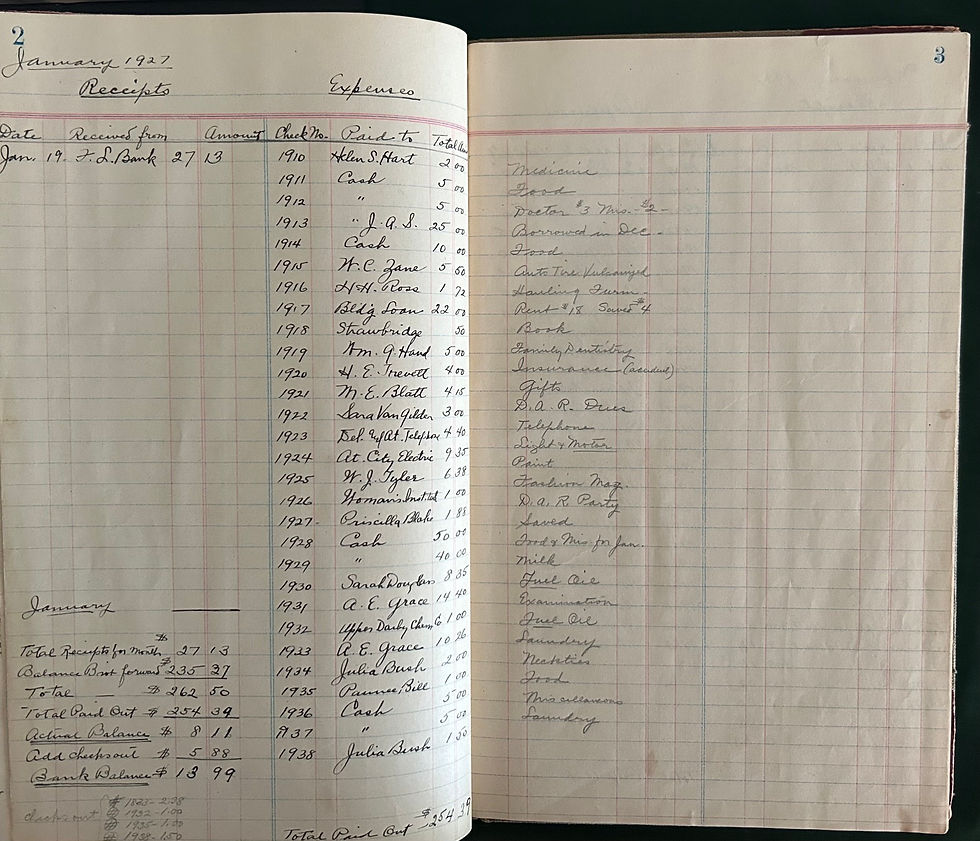 2
January 1927
Receipts Expenses
Date Received from Amount Check No. Paid to Total
Jan. 19. F. L. Bank 27 13 1910 Helen S. Hart 2 00
1911 Cash 5 00
1912 " 5 00
1913 " J. A. S. 25 00
1914 Cash 10 00
1915 W. C. Zane 5 50
1916 H. H. Ross 1 72
1917 Bldg Loan 22 00
1918 Strawbridge 50
1919 Wm. G. Hand 5 00
1920 H. E. Trevett 4 00
1921 M. E. Blatt 4 15
1922 Sara Van Gilder 3 00
1923 Del. & At. Telephone 4 40
1924 At. City Electric 9 35
1925 W. J. Tyler 6 38
1926 Woman's Institute 1 00
1927 - Priscilla Blake 1 88
1928 Cash 50 00
1929 " 40 00
1930 Sarah Douglass 8 35
January 1931 A. E. Grace 14 40
1932 Upper Darby Chem 1 00
Total Receipts for Month $ 27 13 1933 A. E. Grace 10 26
Balance Brot forward $ 235 37 1934 Julia Bush 2 00
Total — $ 262 50 1935 Pawnee Bill 1 00
Total Paid Out $ 254 39 1936 Cash 5 00
Actual Balance $ 8 11 1937 " 5 00
Add checks out $ 5 88 1938 Julia Bush 1 50
Bank Balance $ 13 99
checks out # 1828 - 2.38
1932 - 1.00
1935 - 1.00
1938 - 1.50
Total Paid Out $254 39
3
Medicine
Food
Doctor $3 Mis. - $2 -
Borrowed in Dec. -
Food
Auto Tire Vulcanized
Hauling Furn. -
Rent $18 Saved $4
Book
Family Dentistry
Insurance (accident)
Gifts
D. A. R. Dues
Telephone
Light & Motor
Paint
Fashion Mag.
D. A. R Party
Saved
Food & Mis. for Jan.
Milk
Fuel Oil
Examination
Fuel Oil
Laundry
Neckties
Food
Miscellaneous
Laundry